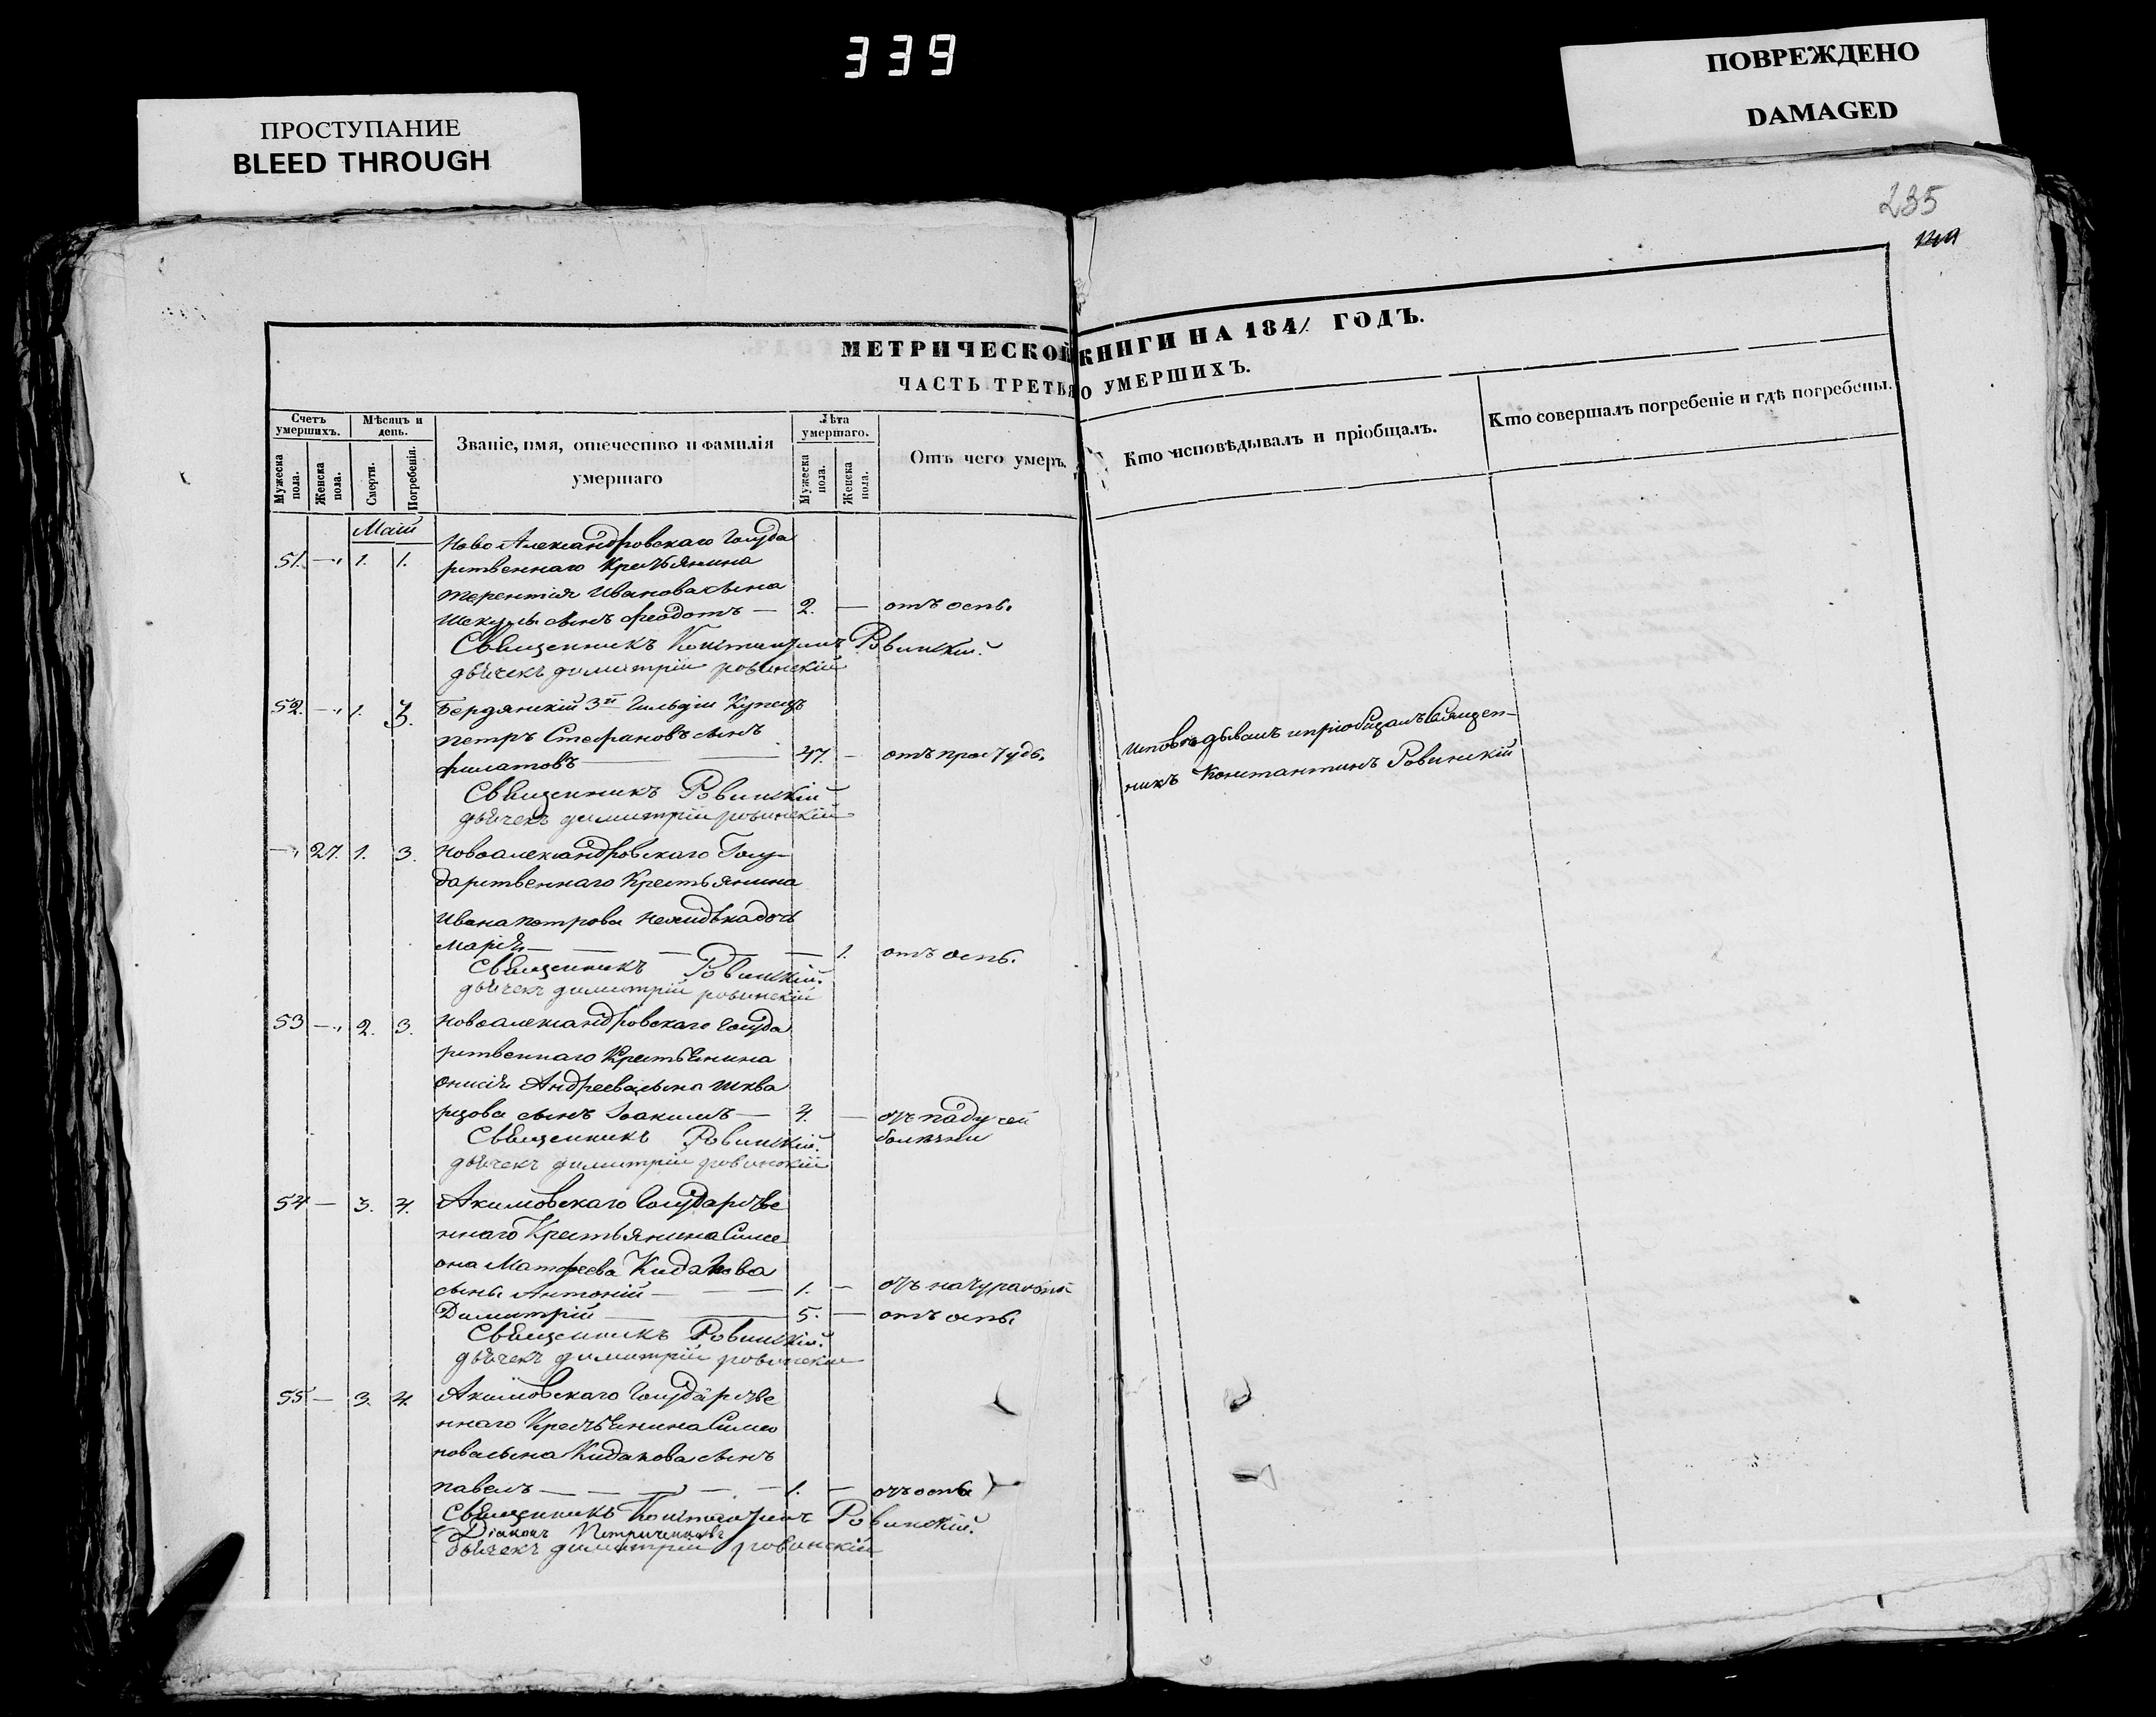 339
ПРОСТУПАНИЕ
BLEED THROUGH
ПОВРЕЖДЕНО
DAMAGED
235
МЕТРИЧЕСКОЙ КНИГИ НА 184/ ГОДЪ.
ЧАСТЬ ТРЕТЬЯ О УМЕРШИХЪ.
Счетъ умершихъ.
Мѣсяцъ и день.
Званіе, имя, отечество и фамилія умершаго
Лѣта умершаго.
Отъ чего умеръ.
Кто исповѣдывалъ и пріобщалъ.
Кто совершалъ погребеніе и гдѣ погребены.
Мужеска пола.
Женска пола.
Смерти.
Погребенія.
Мужеска пола.
Женска пола.
Маій
51. — 1. 1. Ново Александровскаго Госуда
рственнаго Крестьянина
Терентія Иванова сына
сынъ Феодотъ — 2. — отъ оспы
Священникъ Константинъ Ровинскій.
дьячекъ димитрій ровинскій
52. — 1. 3. Бердянскій 3й Гильдіи Купецъ
петръ Стефановъ сынъ
филатовъ — 47. — отъ простуды.
исповѣдывалъ и пріобщалъ Священ-
никъ Константинъ Ровинскій
Священникъ Ровинскій
дьячекъ димитрій ровинскій
— 27. 1. 3. Новоалександровскаго Госу-
дарственнаго Крестьянина
Ивана петрова дочь
Марія — 1. отъ оспы.
Священникъ Ровинскій.
дьячекъ димитрій ровинскій
53 — 2. 3. Новоалександровскаго Госуда
рственнаго Крестьянина
Онисія Андреева сына шква
рцова сынъ Іоакимъ — 4. — отъ падучей
болѣзни
Священникъ Ровинскій.
дьячекъ димитрій ровинскій
54 — 3. 4. Акимовскаго Государстве
ннаго Крестьянина Симе
она Матфеева Кидакова
сыны Антоній — 1. — отъ
Димитрій — 5. — отъ оспы
Священникъ Ровинскій.
дьячекъ димитрій ровинскій
55 — 3. 4. Акимовскаго Государстве
ннаго Крестьянина Симео
нова сына Кидакова сынъ
павелъ — 1. — отъ оспы
Священникъ Константинъ Ровинскій.
Діаконъ
дьячекъ димитрій ровинскій